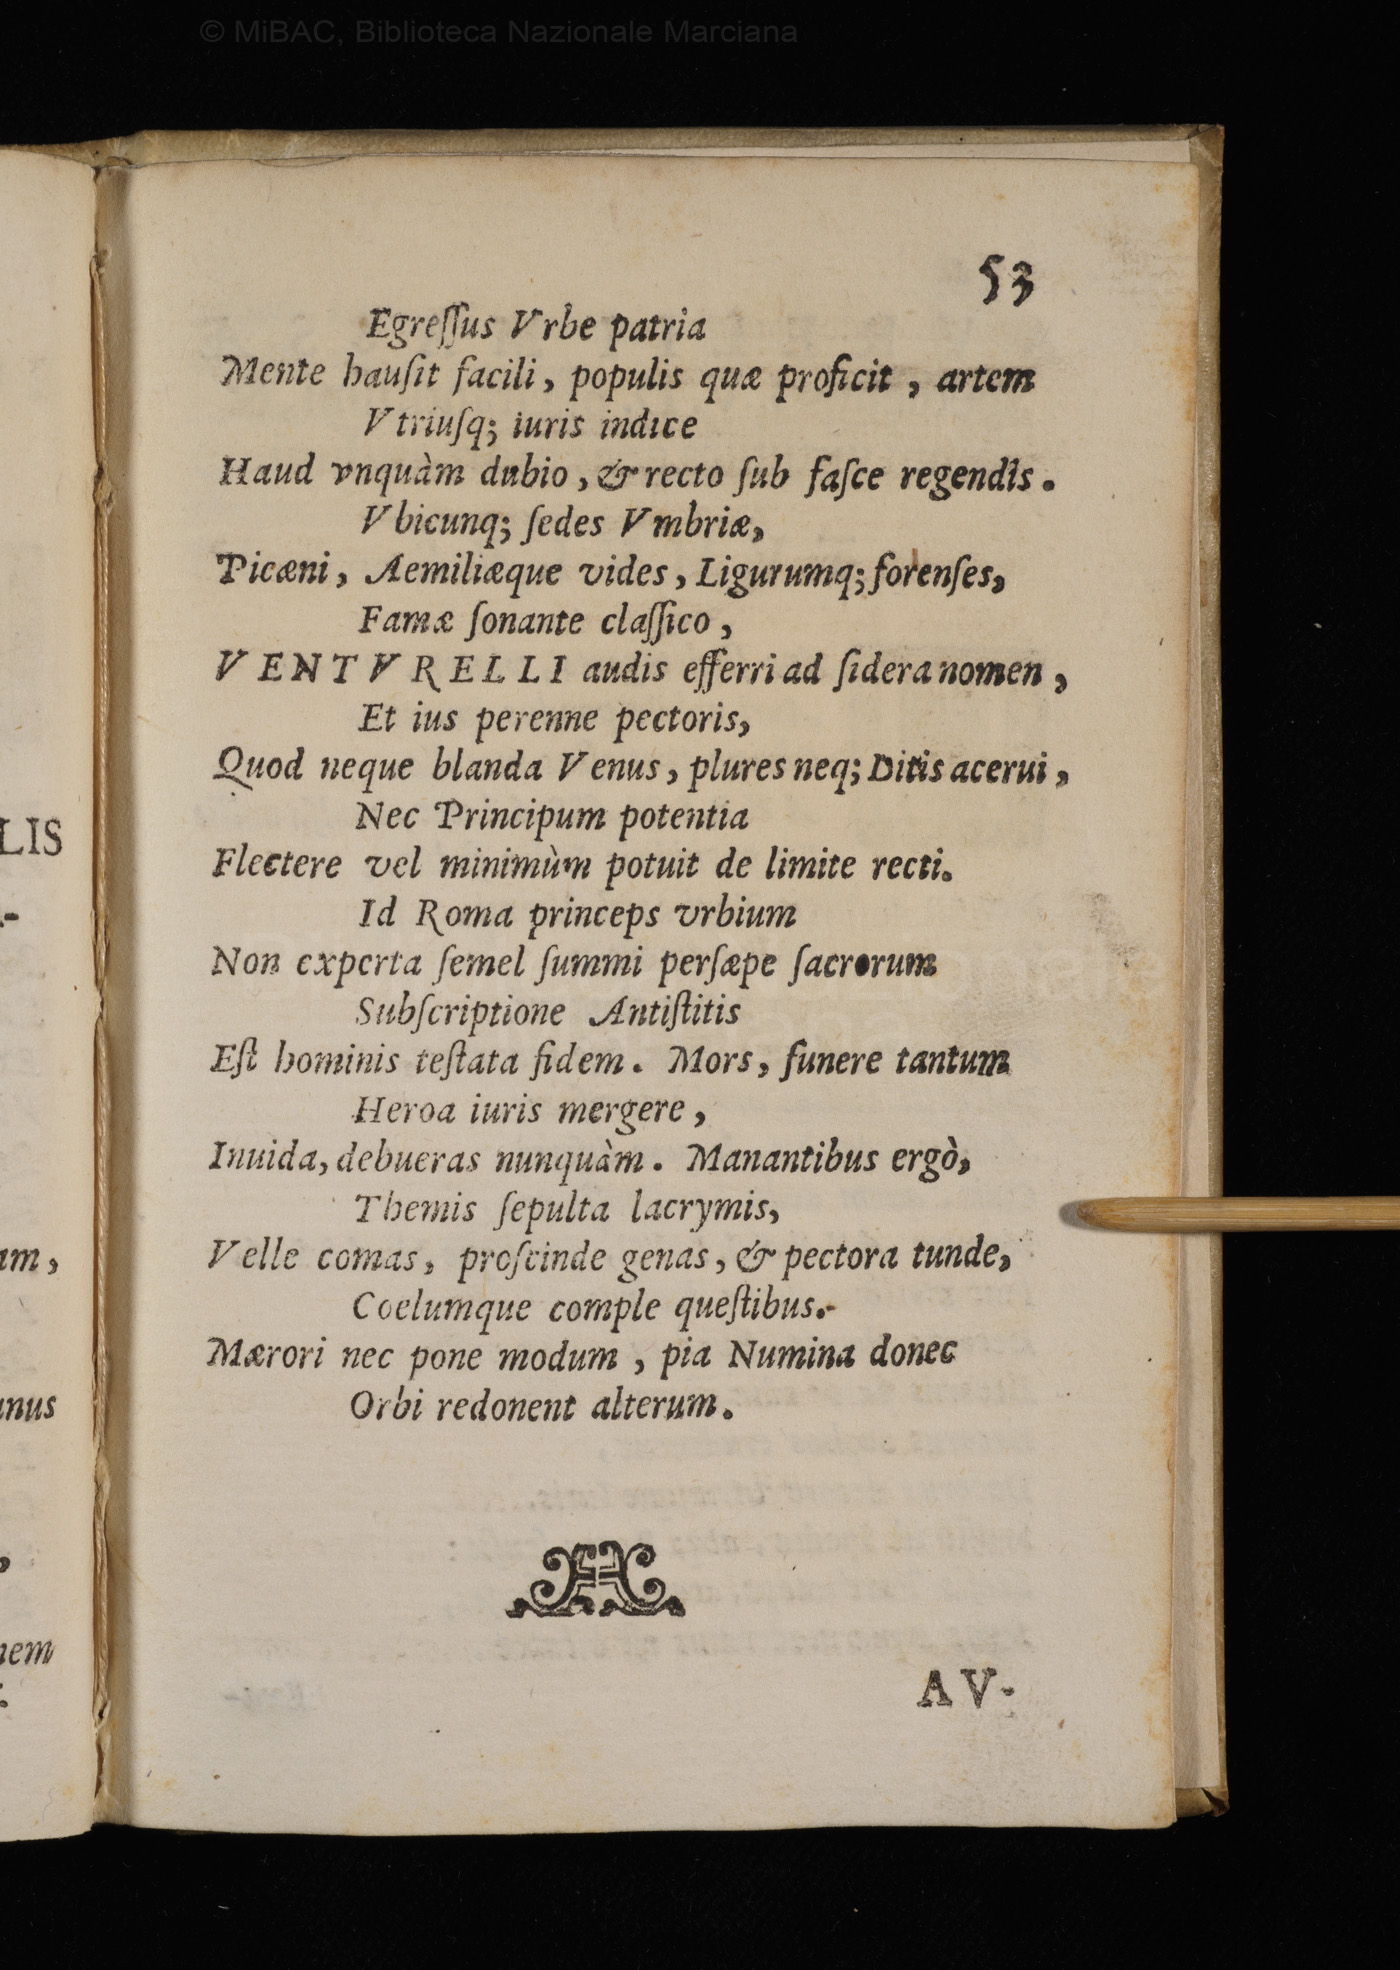 © MiBAC, Biblioteca Nazionale Marciana
53
Egreſſus Vrbe patria
Mente hauſit facili, populis quæ proficit, artem
Vtriuſq; iuris indice
Haud vnquàm dubio, & recto ſub faſce regendis.
Vbicunq; ſedes Vmbriæ,
Picæni, Aemiliæque vides, Ligurumq; forenſes,
Famæ ſonante claſſico,
VENTVRELLI audis efferri ad ſidera nomen,
Et ius perenne pectoris,
Quod neque blanda Venus, plures neq; Ditis acerui,
Nec Principum potentia
Flectere vel minimùm potuit de limite recti.
Id Roma princeps vrbium
Non experta ſemel ſummi perſæpe ſacrorum
Subſcriptione Antiſtitis
Eſt hominis teſtata fidem. Mors, funere tantum
Heroa iuris mergere,
Inuida, debueras nunquàm. Manantibus ergò,
Themis ſepulta lacrymis,
Velle comas, proſcinde genas, & pectora tunde,
Coelumque comple queſtibus.
Mærori nec pone modum, pia Numina donec
Orbi redonent alterum.
AV-
LIS
am,
nus
nem